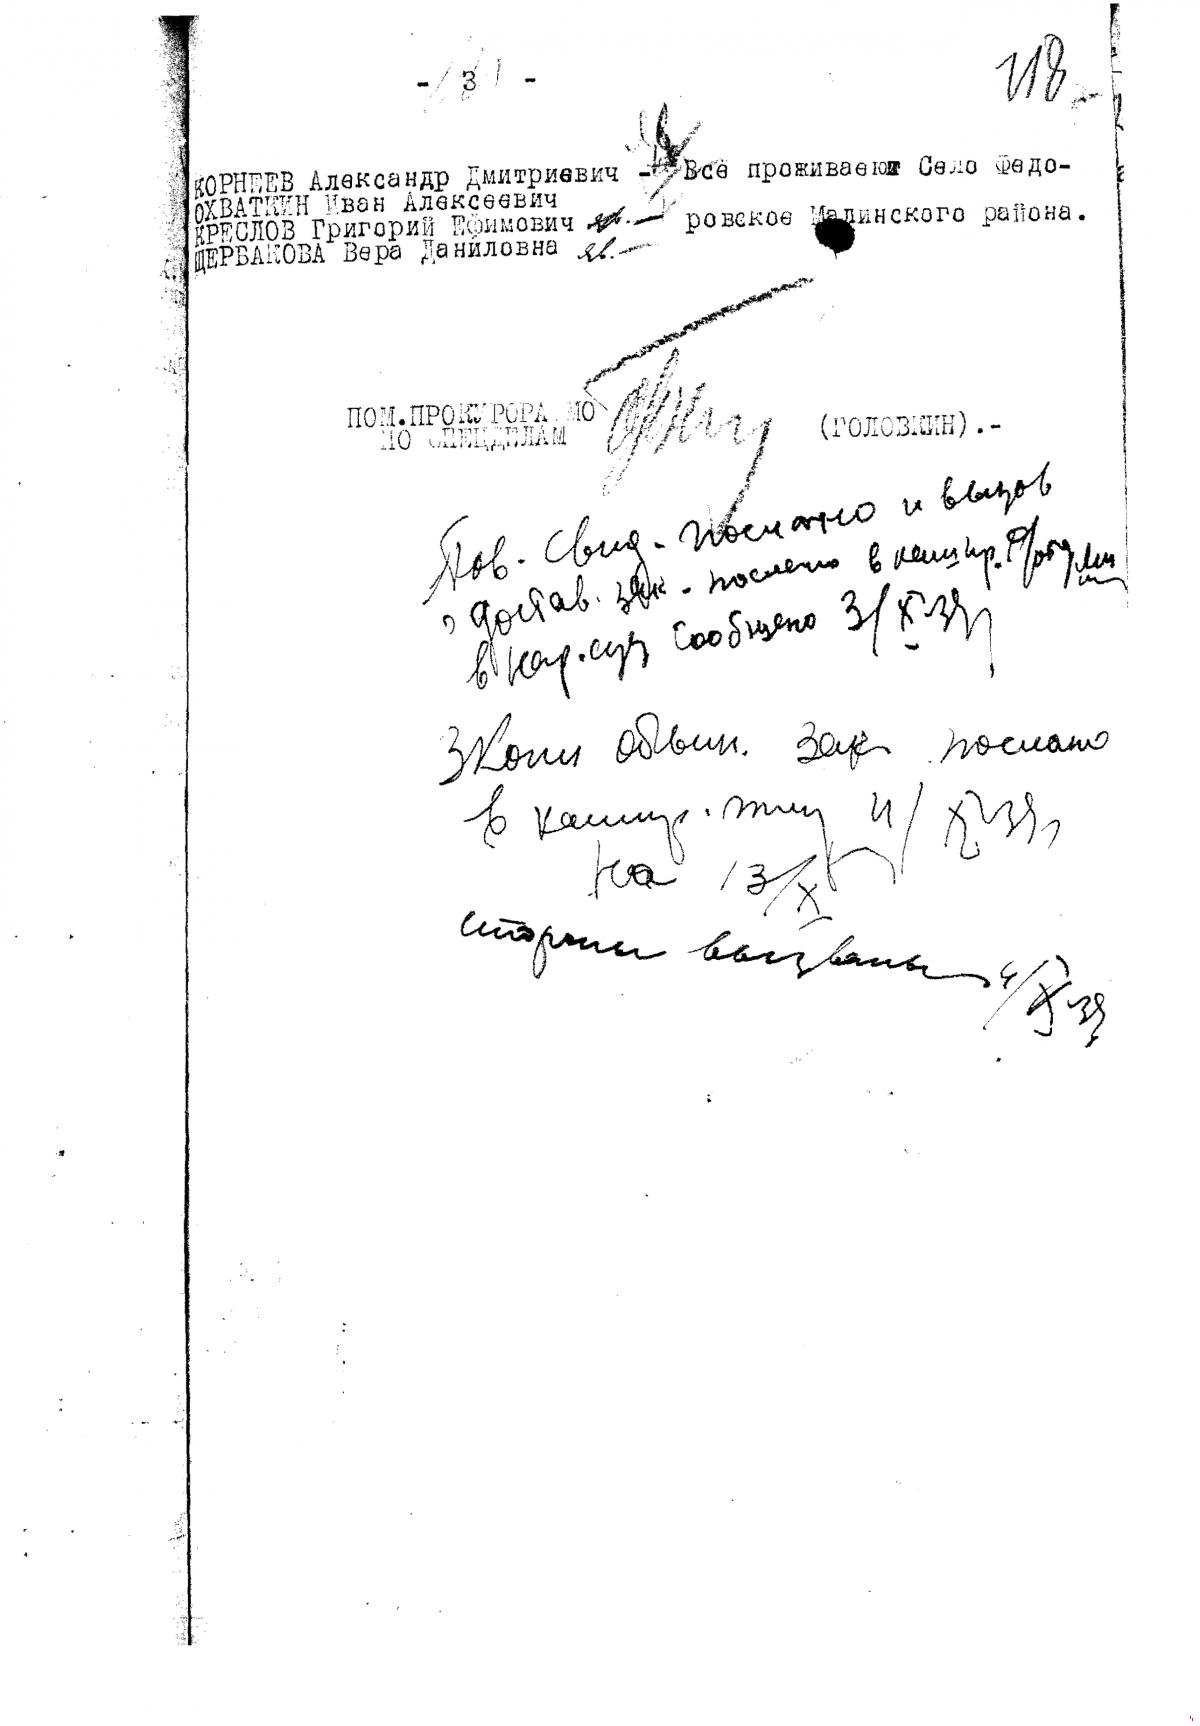 - 3 -
118
КОРНЕЕВ Александр Дмитриевич - Все проживают Село Федо-
ОХВАТКИН Иван Алексеевич
КРЕСЛОВ Григорий Ефимович яв. — ровское Малинского района.
ЩЕРБАКОВА Вера Даниловна яв. —
ПОМ.ПРОКУРОРА МО
ПО СПЕЦДЕЛАМ (ГОЛОВКИН).-
Пов. Свид. послано и вызов
достав. зак. послано в кашир.
в нар.суд сообщено 3/X-39
3 Копии обвин. зак. послано
в кашир. 4/X-39
на 13/X
стороны вызваны 4/X-39